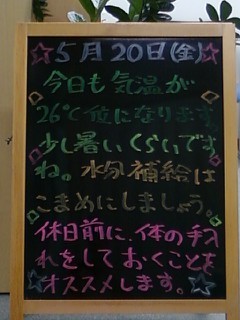 5月20日(金)
今日も気温が
26℃位になります
少し暑いくらいです
ね。水分補給は
こまめにしましょう。
休日前に、体の手入
れをしておくことを
オススメします。